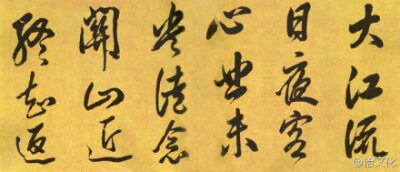 大江流
日夜客
心悲未
央徒念
關山近
終知返
@拾文化